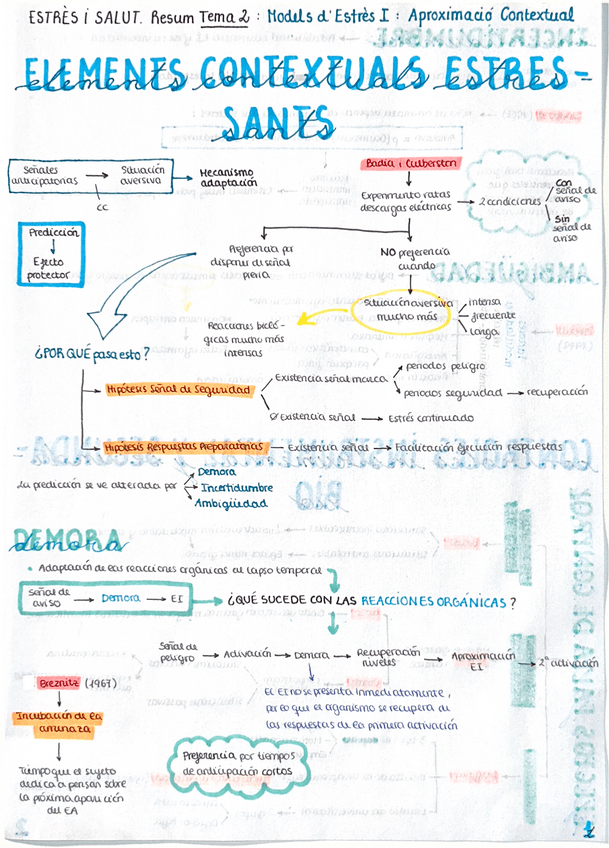 ESTRÈS i SALUT. Resum Tema 2 : Models d'Estrès I : Aproximació Contextual
ELEMENTS CONTEXTUALS ESTRES-
elements contextuals estres
SANTS
sants
Señales
anticipatorias
Situación
aversiva
CC
Mecanismo
adaptación
Badia i Culberston
Experimento ratas
descargas eléctricas
2 condiciones
Con
señal de
aviso
Sin
señal de
aviso
Predicción
Efecto
protector
Preferencia por
disponer de señal
previa
NO preferencia
cuando
Situación aversiva
mucho más
intensa
frecuente
larga
Reacciones bioló-
gicas mucho más
intensas
¿POR QUÉ pasa esto?
Hipótesis Señal de Seguridad
Existencia señal marca
periodos peligro
periodos seguridad
recuperación
Existencia señal
Estrés continuado
Hipótesis Respuestas Preparatorias
Existencia señal
Facilitación ejecución respuestas
La predicción se ve alterada por
Demora
Incertidumbre
Ambigüedad
DEMORA
demora
• Adaptación de las reacciones orgánicas al lapso temporal
Señal de
aviso
Demora
EI
¿QUÉ SUCEDE CON LAS REACCIONES ORGÁNICAS?
Señal de
peligro
Activación
Demora
Recuperación
niveles
Aproximación
EI
2ª activación
El EI no se presenta inmediatamente,
por lo que el organismo se recupera de
las respuestas de la primera activación
Breznitz (1967)
Incubación de la
amenaza
Tiempo que el sujeto
dedica a pensar sobre
la próxima aparición
del EA
Preferencia por tiempos
de anticipación cortos
1